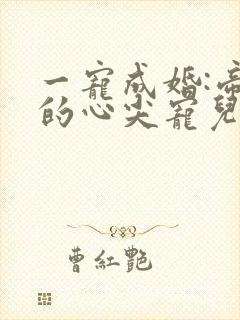 一寵成婚:帝
的心尖寵兒
曹紅艷